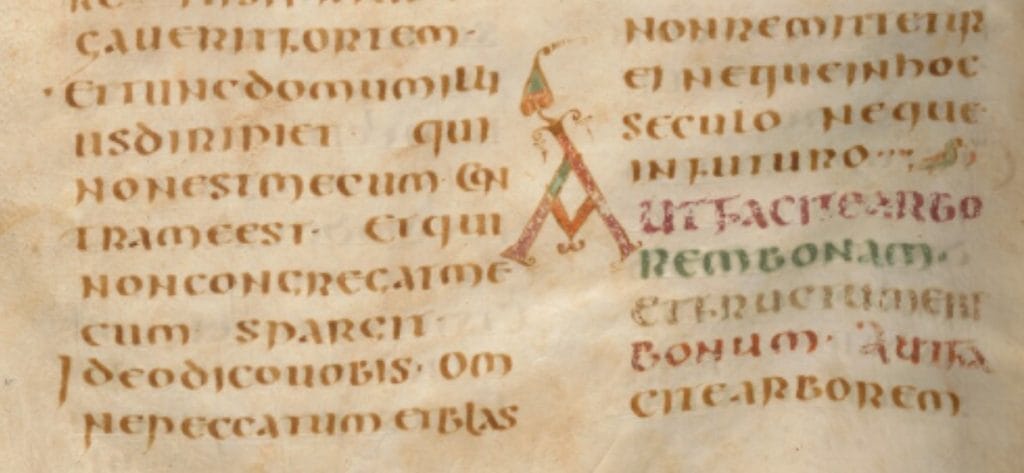 GAUERITFORTEM·
·ETTUNCDOMUMILLI
USDIRIPIET QUI
NONESTMECUM·CON
TRAMEEST· ETQUI
NONCONGREGATME
CUM SPARGIT·
IDEODICOUOBIS· OM
NEPECCATUM ETBLAS
NONREMITTETUR
EI NEQUEINHOC
SECULO NEQUE
INFUTURO
AUTFACITEARBO
REMBONAM·
ETFRUCTUMEIU
BONUM· AUTFA
CITEARBOREM